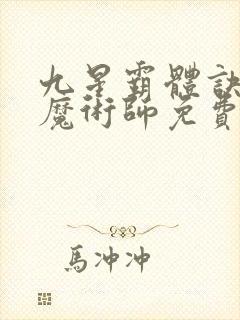 九星霸體訣
魔術師免費
馬冲冲